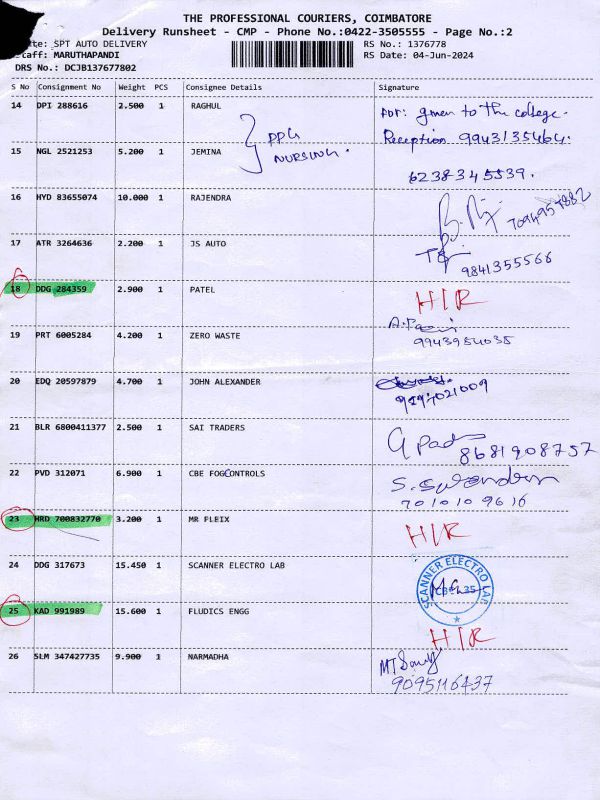 THE PROFESSIONAL COURIERS, COIMBATORE
Delivery Runsheet - CMP - Phone No.:0422-3505555 - Page No.:2
SPT AUTO DELIVERY
RS No.: 1376778
Staff: MARUTHAPANDI
RS Date: 04-Jun-2024
DRS No.: DCJB137677802
S No Consignment No Weight PCS Consignee Details Signature
14 DPI 288616 2.500 1 RAGHUL given to the college.
Reception 9943135464.
PPG
NURSING.
15 NGL 2521253 5.200 1 JEMINA
6238345539.
16 HYD 83655074 10.000 1 RAJENDRA 7094957882
17 ATR 3264636 2.200 1 JS AUTO
9841355566
18 DDG 284359 2.900 1 PATEL H/R
19 PRT 6005284 4.200 1 ZERO WASTE
9943954035
20 EDQ 20597879 4.700 1 JOHN ALEXANDER
9497021009
21 BLR 6800411377 2.500 1 SAI TRADERS
8681908757
22 PVD 312071 6.900 1 CBE FOGCONTROLS
7010109616
23 HRD 700832770 3.200 1 MR FLEIX H/R
24 DDG 317673 15.450 1 SCANNER ELECTRO LAB
SCANNER ELECTRO LAB
25 KAD 991989 15.600 1 FLUDICS ENGG
H/R
26 SLM 347427735 9.900 1 NARMADHA
9095116437